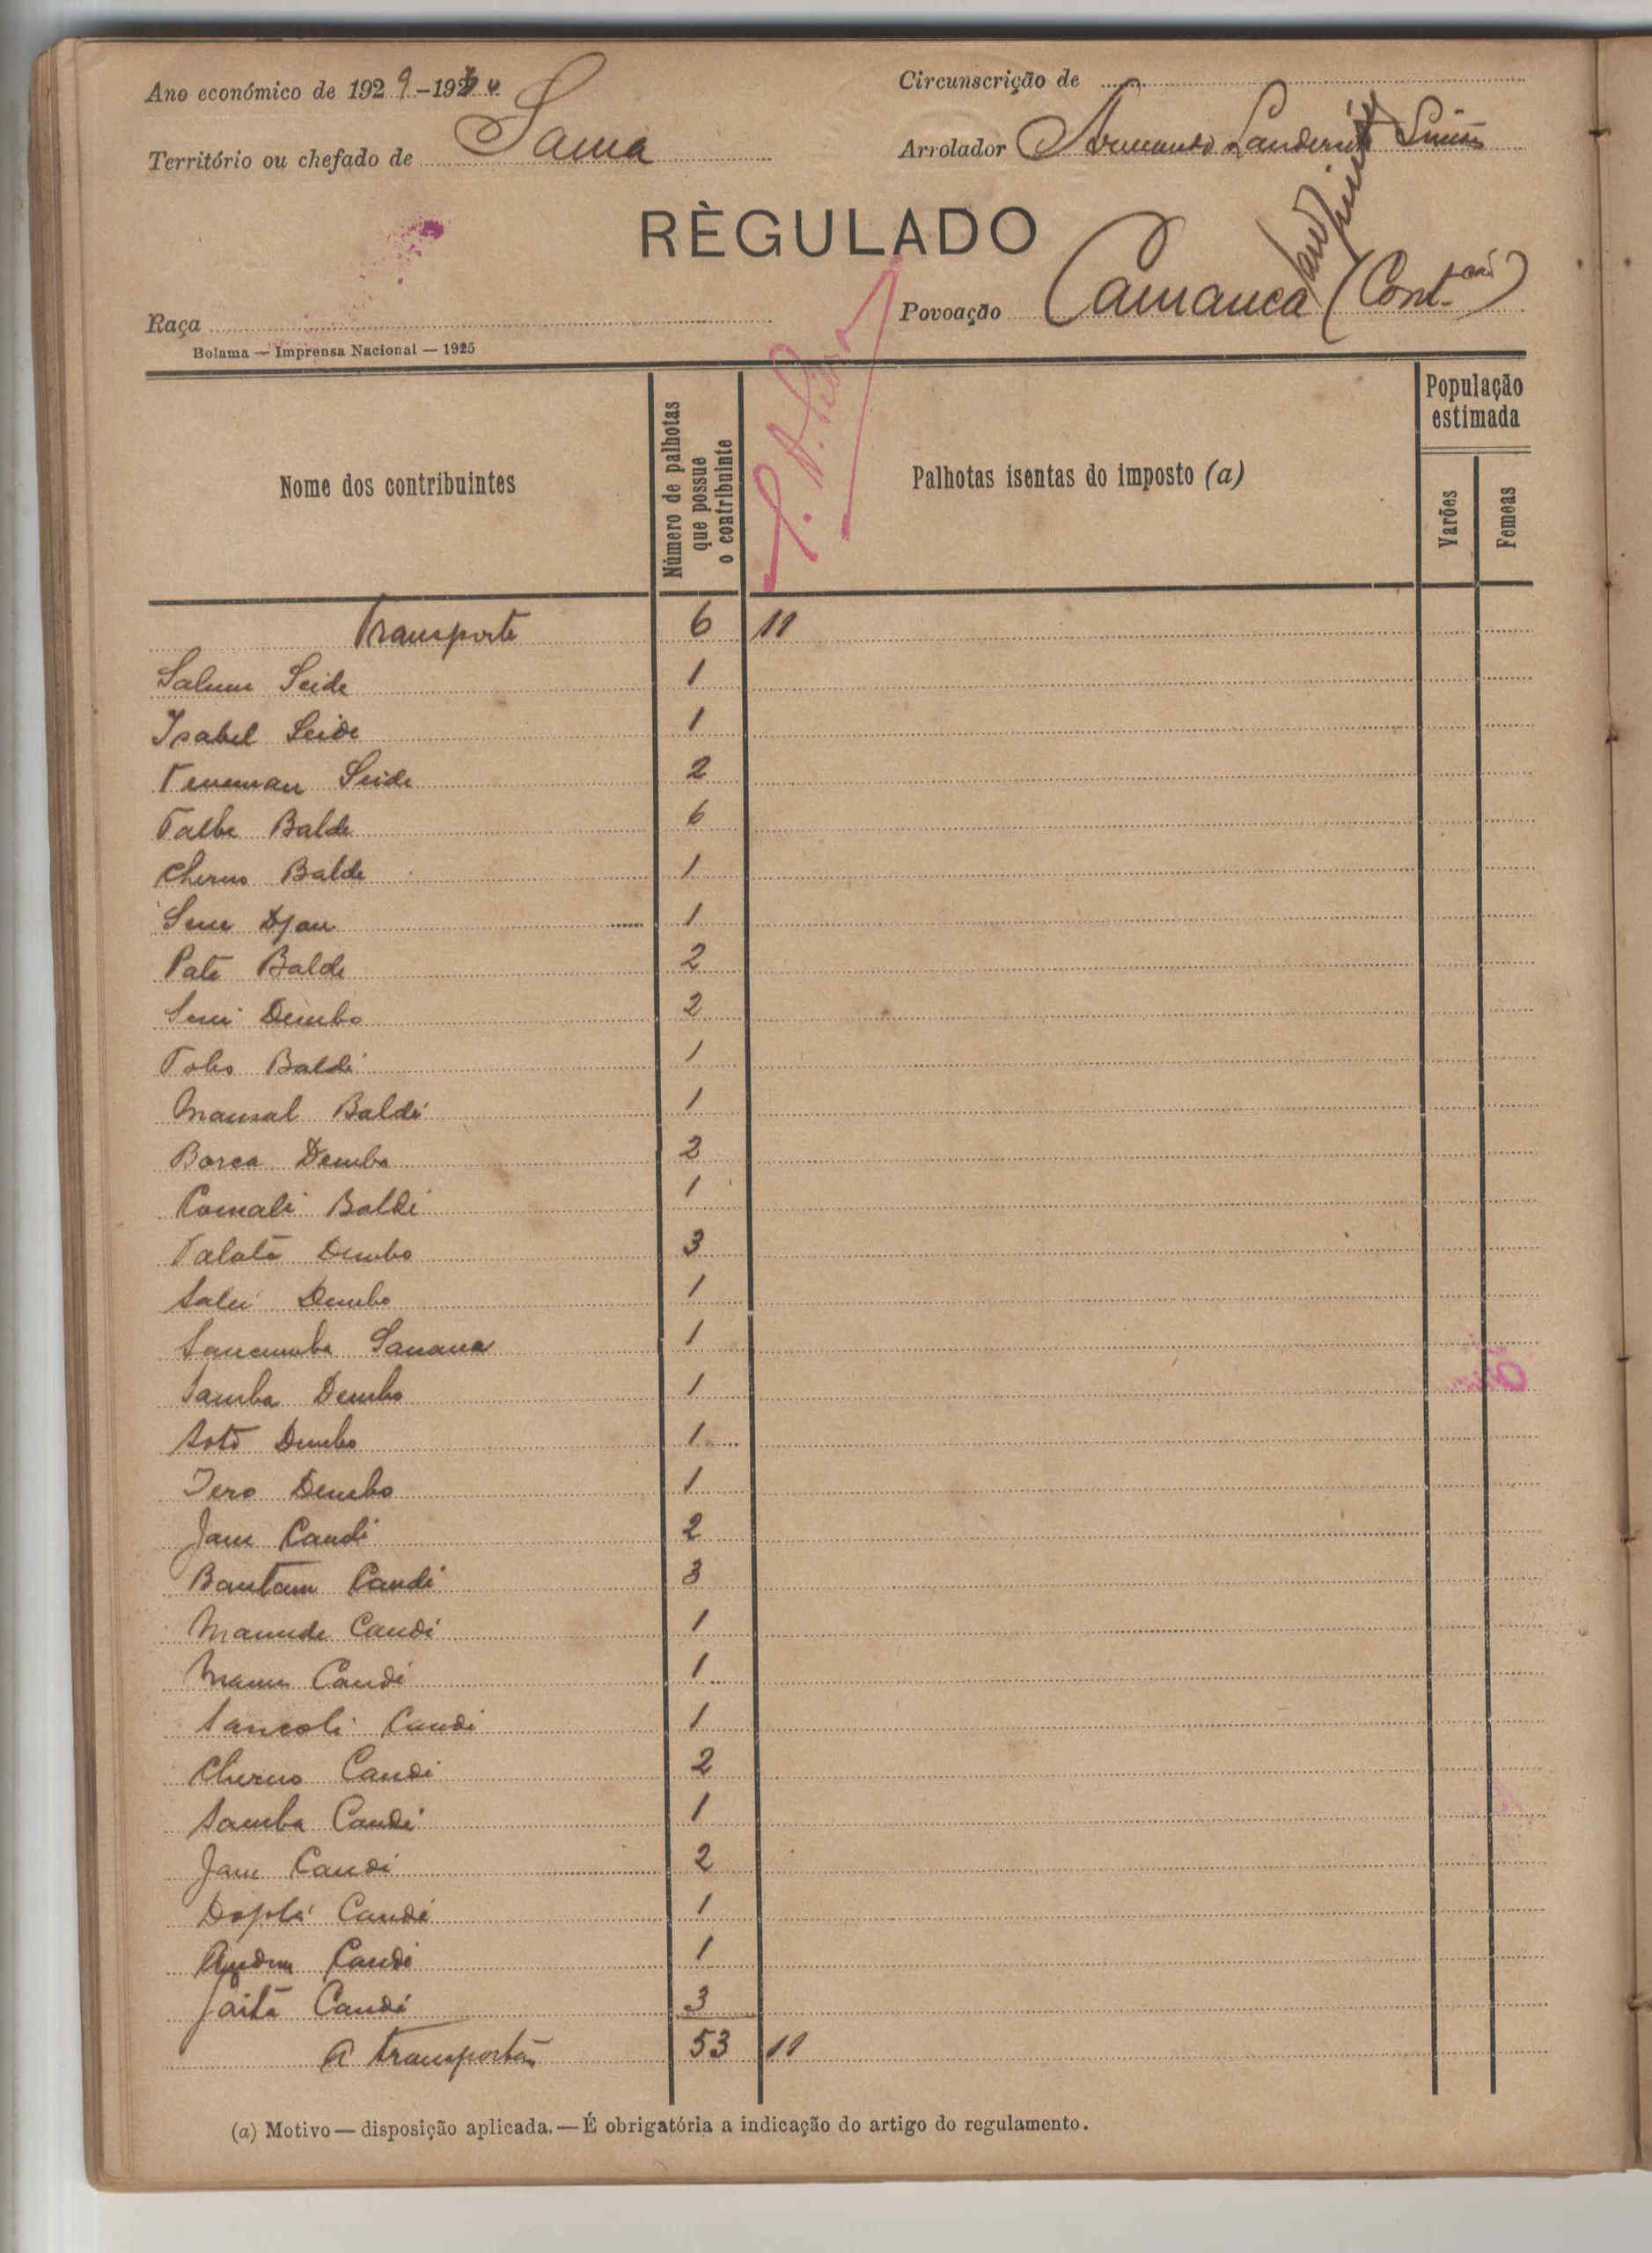 Ano económico de 1929-1930
Circunscrição de
Território ou chefado de Sama
Arrolador Armando Landerset Simões
RÈGULADO
Raça
Povoação Camanca (Cont.ção)
Bolama — Imprensa Nacional — 1925
Nome dos contribuintes
Número de palhotas que possue o contribuinte
Palhotas isentas do imposto (a)
População estimada
Varões
Femeas
Transporte 6 11
Seide 1
Isabel Seide 1
Seide 2
Balde 6
Cherno Balde 1
Djau 1
Pate Balde 2
Dembo 2
Baldé 1
Mansal Baldé 1
Borea Dembo 2
Comali Baldé 1
Talatã Dembo 3
Saliu Dembo 1
Sancumba Sanana 1
Samba Dembo 1
Soto Dembo 1
Iero Dembo 1
Jam Candi 2
Bantam Candi 3
Mamude Candi 1
Candi 1
Sancoli Candi 1
Cherno Candi 2
Samba Candé 1
Jam Candi 2
Candé 1
Candé 1
Candé 3
A transportar 53 11
(a) Motivo — disposição aplicada. — É obrigatória a indicação do artigo do regulamento.